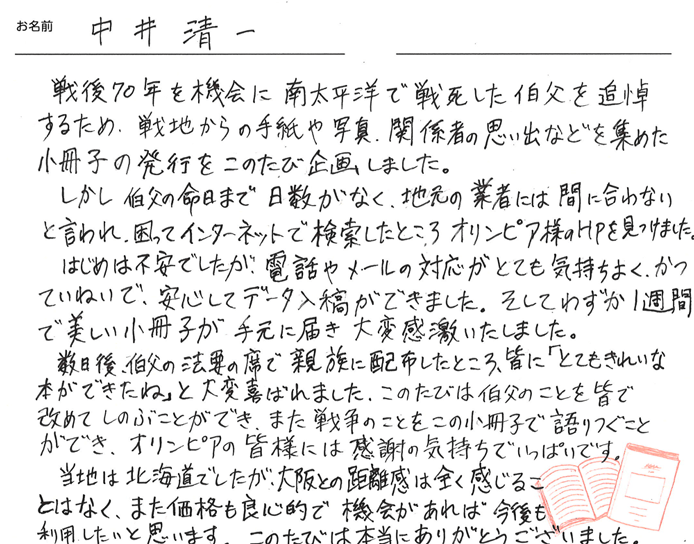 お名前 中井 清一
戦後70年を機会に 南太平洋で戦死した伯父を追悼
するため、戦地からの手紙や写真、関係者の思い出などを集めた
小冊子の発行をこのたび企画しました。
しかし 伯父の命日まで 日数がなく、地元の業者には間に合わない
と言われ、困ってインターネットで検索したところ オリンピア様のHPを見つけました。
はじめは不安でしたが、電話やメールの対応がとても気持ちよく、かつ
ていねいで、安心してデータ入稿ができました。そしてわずか1週間
で美しい小冊子が 手元に届き 大変感激いたしました。
数日後、伯父の法要の席で 親族に配布したところ、皆に「とてもきれいな
本ができたね」と大変喜ばれました。このたびは伯父のことを皆で
改めてしのぶことができ、また戦争のことをこの小冊子で語りつぐこと
ができ、オリンピアの皆様には感謝の気持ちでいっぱいです。
当地は北海道でしたが、大阪との距離感は全く感じるこ
とはなく、また価格も良心的で 機会があれば 今後も
利用したいと思います。このたびは本当にありがとうございました。